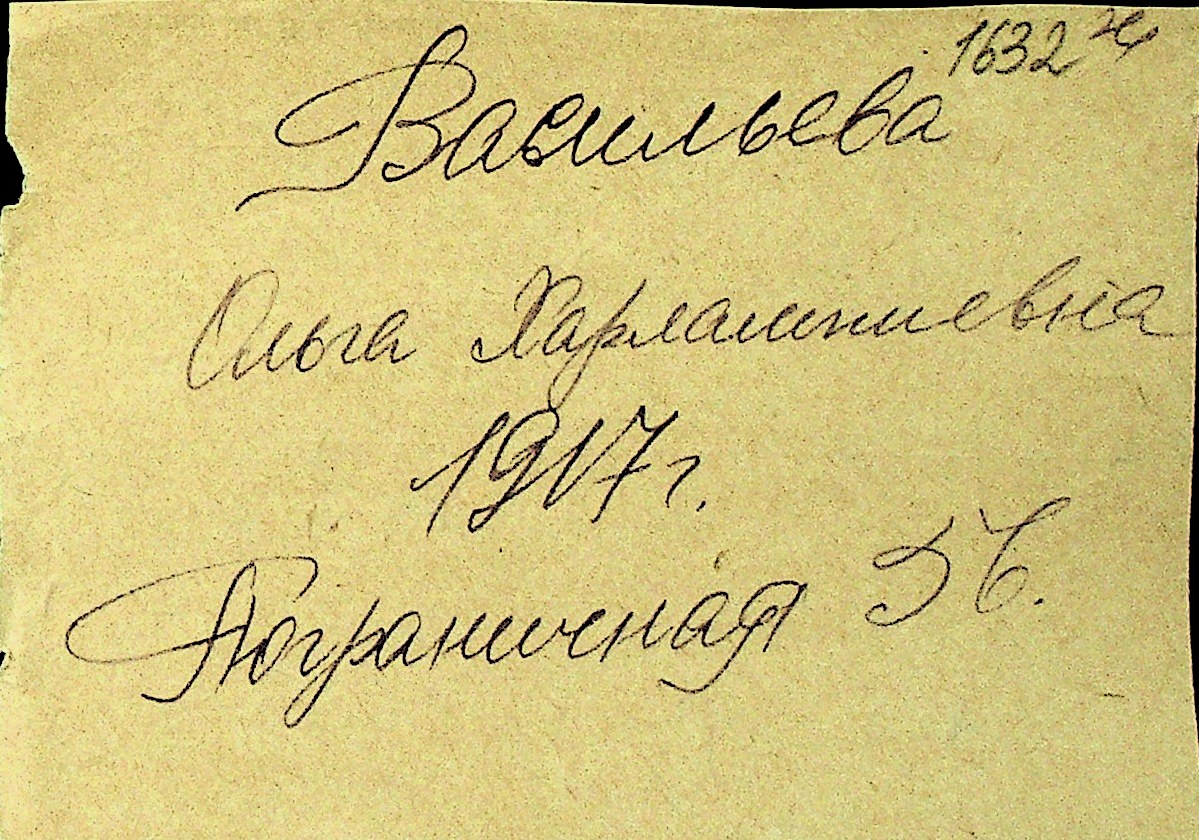 1632
Васильева
Ольга Харлампиевна
1917г.
Пограничная 56.